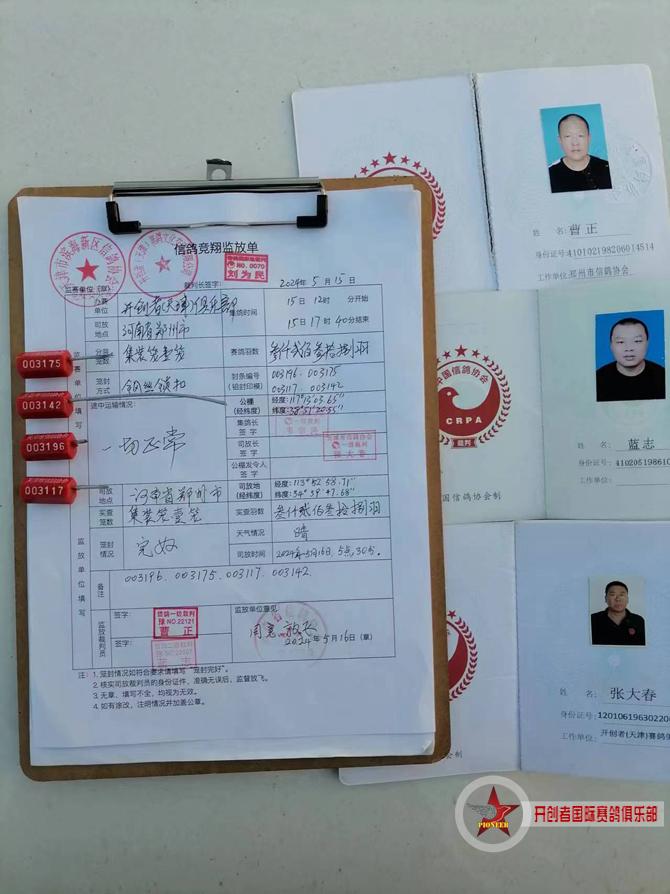 信鸽竞翔监放单
津市滨海新区信鸽协会
NO.0070
刘为民
监赛单位(章)
裁判长签字:
2024年5月15日
办赛单位
开创者(天津)俱乐部
集鸽时间
15日12时 分开始
15日17时40分结束
司放地点
河南省郑州市
分装笼数
集装笼壹笼
赛鸽羽数
叁仟贰佰叁拾捌羽
笼封方式
钢丝锁扣
封条编号(铅封印模)
003196、003175
003117、003142
途中运输情况:
一切正常
公棚(经纬度)
经度:117°13′03.65″
纬度:38°51′20.55″
集鸽长签字
司放长签字
一级裁判
张大春
公棚发令人签字
监赛单位填写
司放地点
河南省郑州市
司放地(经纬度)
经度:113°52′58.71″
纬度:34°39′47.68″
实查笼数
集装笼壹笼
实查羽数
叁仟贰佰叁拾捌羽
笼封情况
完好
天气情况
晴
司放时间
2024年5月16日,5点30分.
备注
003196、003175、003117、003142.
监放单位填写
监放裁判员
签字:
信鸽一级裁判
豫NO.22121
曹正
签字:
蓝志
监放单位意见
同意放飞
2024年5月16日(章)
注:1. 笼封情况如符合要求请填写“笼封完好”。
2. 核实司放裁判员的身份证件,准确无误后,监督放飞。
3. 无章、填写不全,均视为无效。
4. 如有涂改,注明情况并加盖公章。
003175
003142
003196
003117
姓名:曹正
身份证号:410102198206014514
工作单位:郑州市信鸽协会
中国信鸽协会
CRPA
裁判
国信鸽协会制
姓名:蓝志
身份证号:410205198610
工作单位:
协会制
姓名:张大春
身份证号:1201061963022
工作单位:开创者(天津)赛鸽俱
PIONEER
开创者国际赛鸽俱乐部